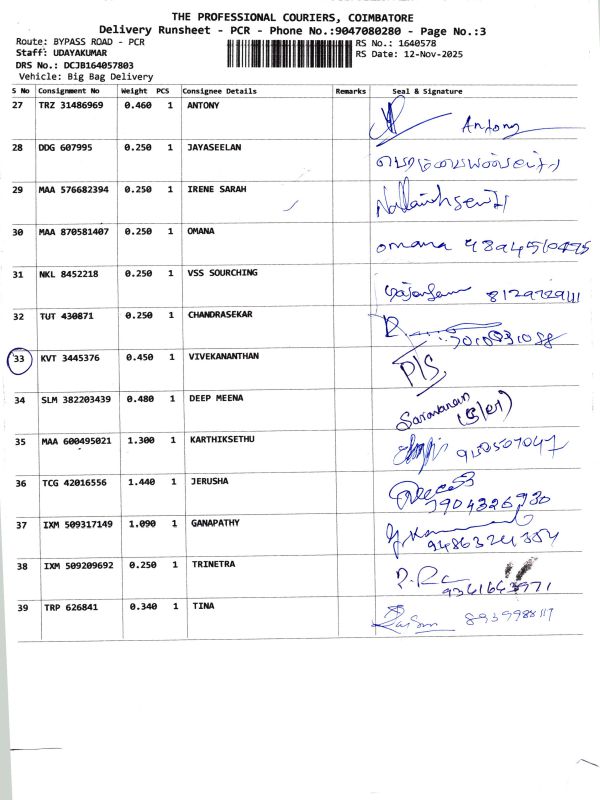 THE PROFESSIONAL COURIERS, COIMBATORE
Delivery Runsheet - PCR - Phone No.:9047080280 - Page No.:3
Route: BYPASS ROAD - PCR RS No.: 1640578
Staff: UDAYAKUMAR RS Date: 12-Nov-2025
DRS No.: DCJB164057803
Vehicle: Big Bag Delivery
S No Consignment No Weight PCS Consignee Details Remarks Seal & Signature
27 TRZ 31486969 0.460 1 ANTONY Antony
28 DDG 607995 0.250 1 JAYASEELAN
29 MAA 576682394 0.250 1 IRENE SARAH
30 MAA 870581407 0.250 1 OMANA omana
31 NKL 8452218 0.250 1 VSS SOURCHING
32 TUT 430871 0.250 1 CHANDRASEKAR
33 KVT 3445376 0.450 1 VIVEKANANTHAN P/S
34 SLM 382203439 0.480 1 DEEP MEENA Saravanan
35 MAA 600495021 1.300 1 KARTHIKSETHU
36 TCG 42016556 1.440 1 JERUSHA 7904326930
37 IXM 509317149 1.090 1 GANAPATHY
38 IXM 509209692 0.250 1 TRINETRA
39 TRP 626841 0.340 1 TINA